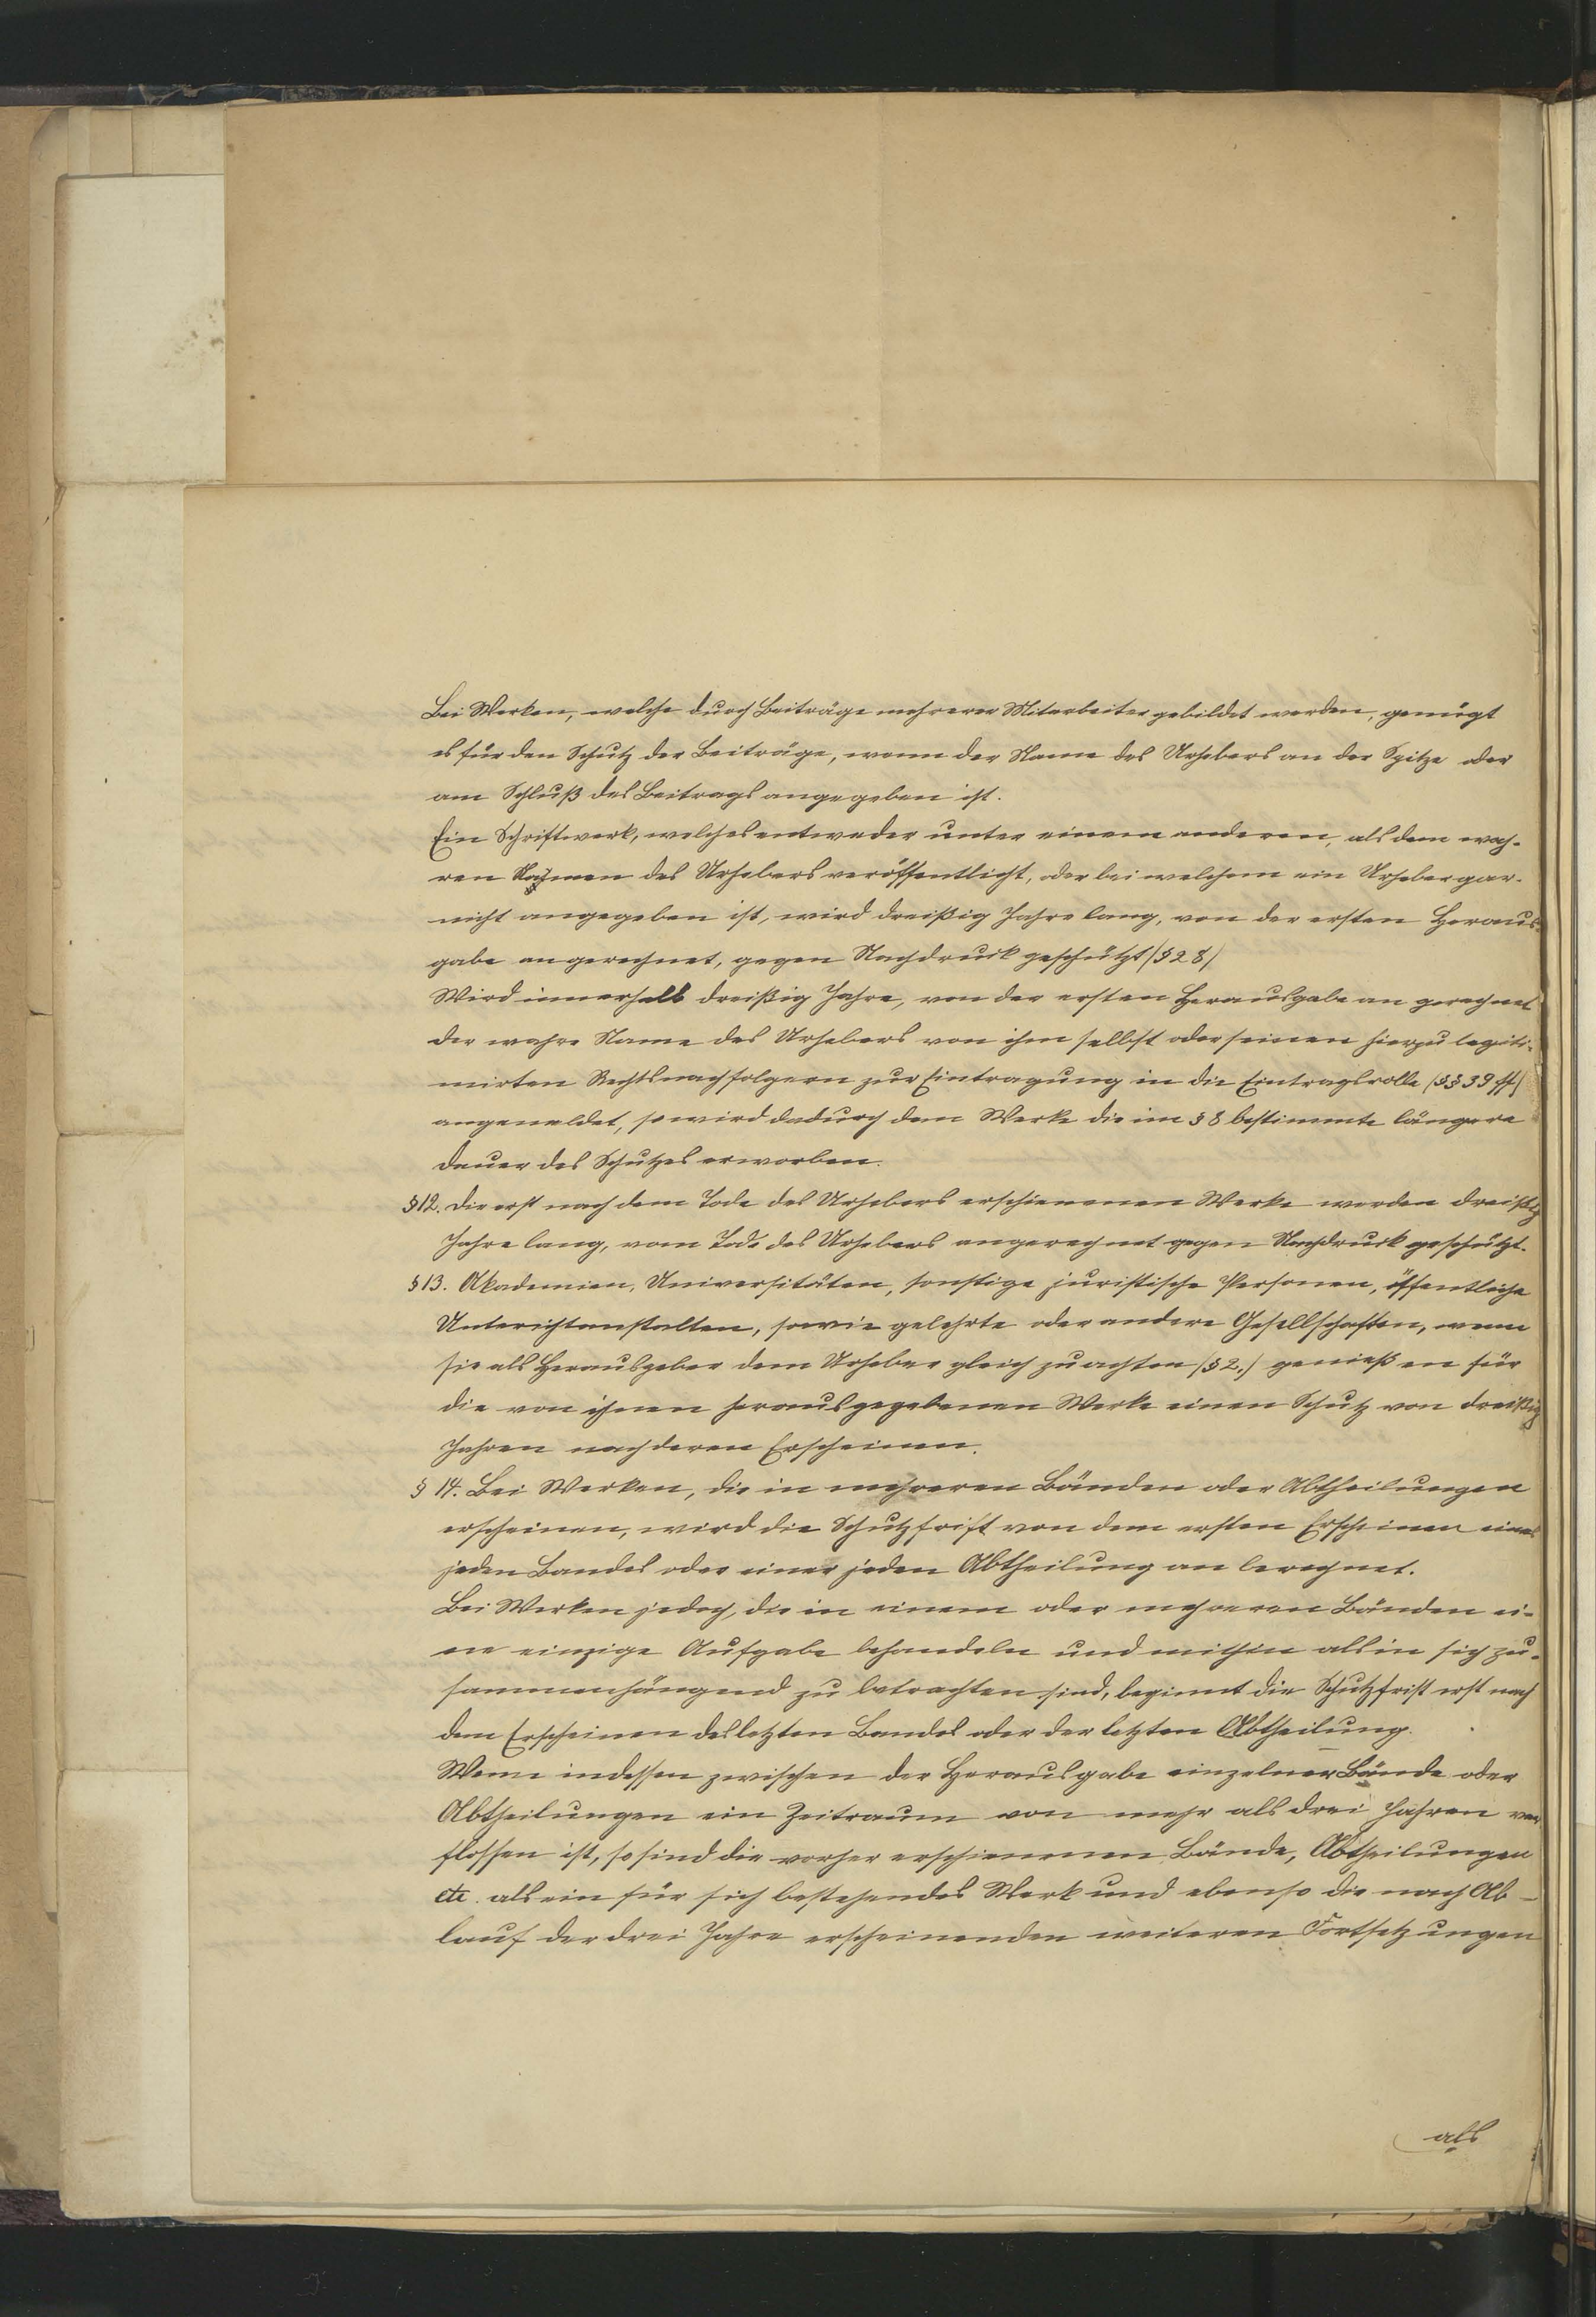 Bei Werken, welche durch Beiträge mehrerer Mitarbeiter gebildet werden, genügt
es für den Schutz der Beiträge, wenn der Name des Urhebers an der Spitze oder
am Schluß des Beitrags angegeben ist.
Ein Schriftwerk, welches entweder unter einem anderen, als dem wah-
ren Namen des Urhebers veröffentlicht, oder bei welchem ein Urheber gar-
nicht angegeben ist, wird dreißig Jahre lang, von der ersten Heraus-
gabe angerechnet, gegen Nachdruck geschützt (§ 28)
Wird innerhalb dreißig Jahre, von der ersten Herausgabe an gerechnet
der wahre Name des Urhebers von ihm selbst oder seinen hierzu legiti-
mirten Rechtsnachfolgern zur Eintragung in die Eintragsrolle (§§ 39 ff)
angemeldet, so wird dadurch dem Werke die im § 8 bestimmte längere
Dauer des Schutzes erworben.
§ 12. Die erst nach dem Tode des Urhebers erschienenen Werke werden dreißig
Jahre lang, vom Tode des Urhebers angerechnet gegen Nachdruck geschützt.
§ 13. Akademien, Universitäten, sonstige juristische Personen, öffentliche
Unterichtanstalten, sowie gelehrte oder andere Gesellschaften, wenn
sie als Herausgeber dem Urheber gleich zu achten (§ 2.) genießen für
die von ihnen herausgegebenen Werke einen Schutz von dreißig
Jahren nach deren Erscheinen.
§ 14. Bei Werken, die in mehreren Bänden oder Abtheilungen
erscheinen, wird die Schutzfrist von dem ersten Erscheinen eines
jeden Bandes oder einer jeden Abtheilung an berechnet.
Bei Werken jedoch, die in einem oder mehreren Bänden ei-
ne einzige Aufgabe behandeln und mithin als in sich zu-
sammenhängend zu betrachten sind, beginnt die Schutzfrist erst nach
dem Erscheinen des letzten Bandes oder der letzten Abtheilung.
Wenn indessen zwischen der Herausgabe einzelner Bände oder
Abtheilungen ein Zeitraum von mehr als drei Jahren ver-
flossen ist, so sind die vorher erschienenen Bände, Abtheilungen
etc. als ein für sich bestehendes Werk und ebenso die nach Ab-
lauf der drei Jahre erscheinenden weiteren Fortsetzungen
als